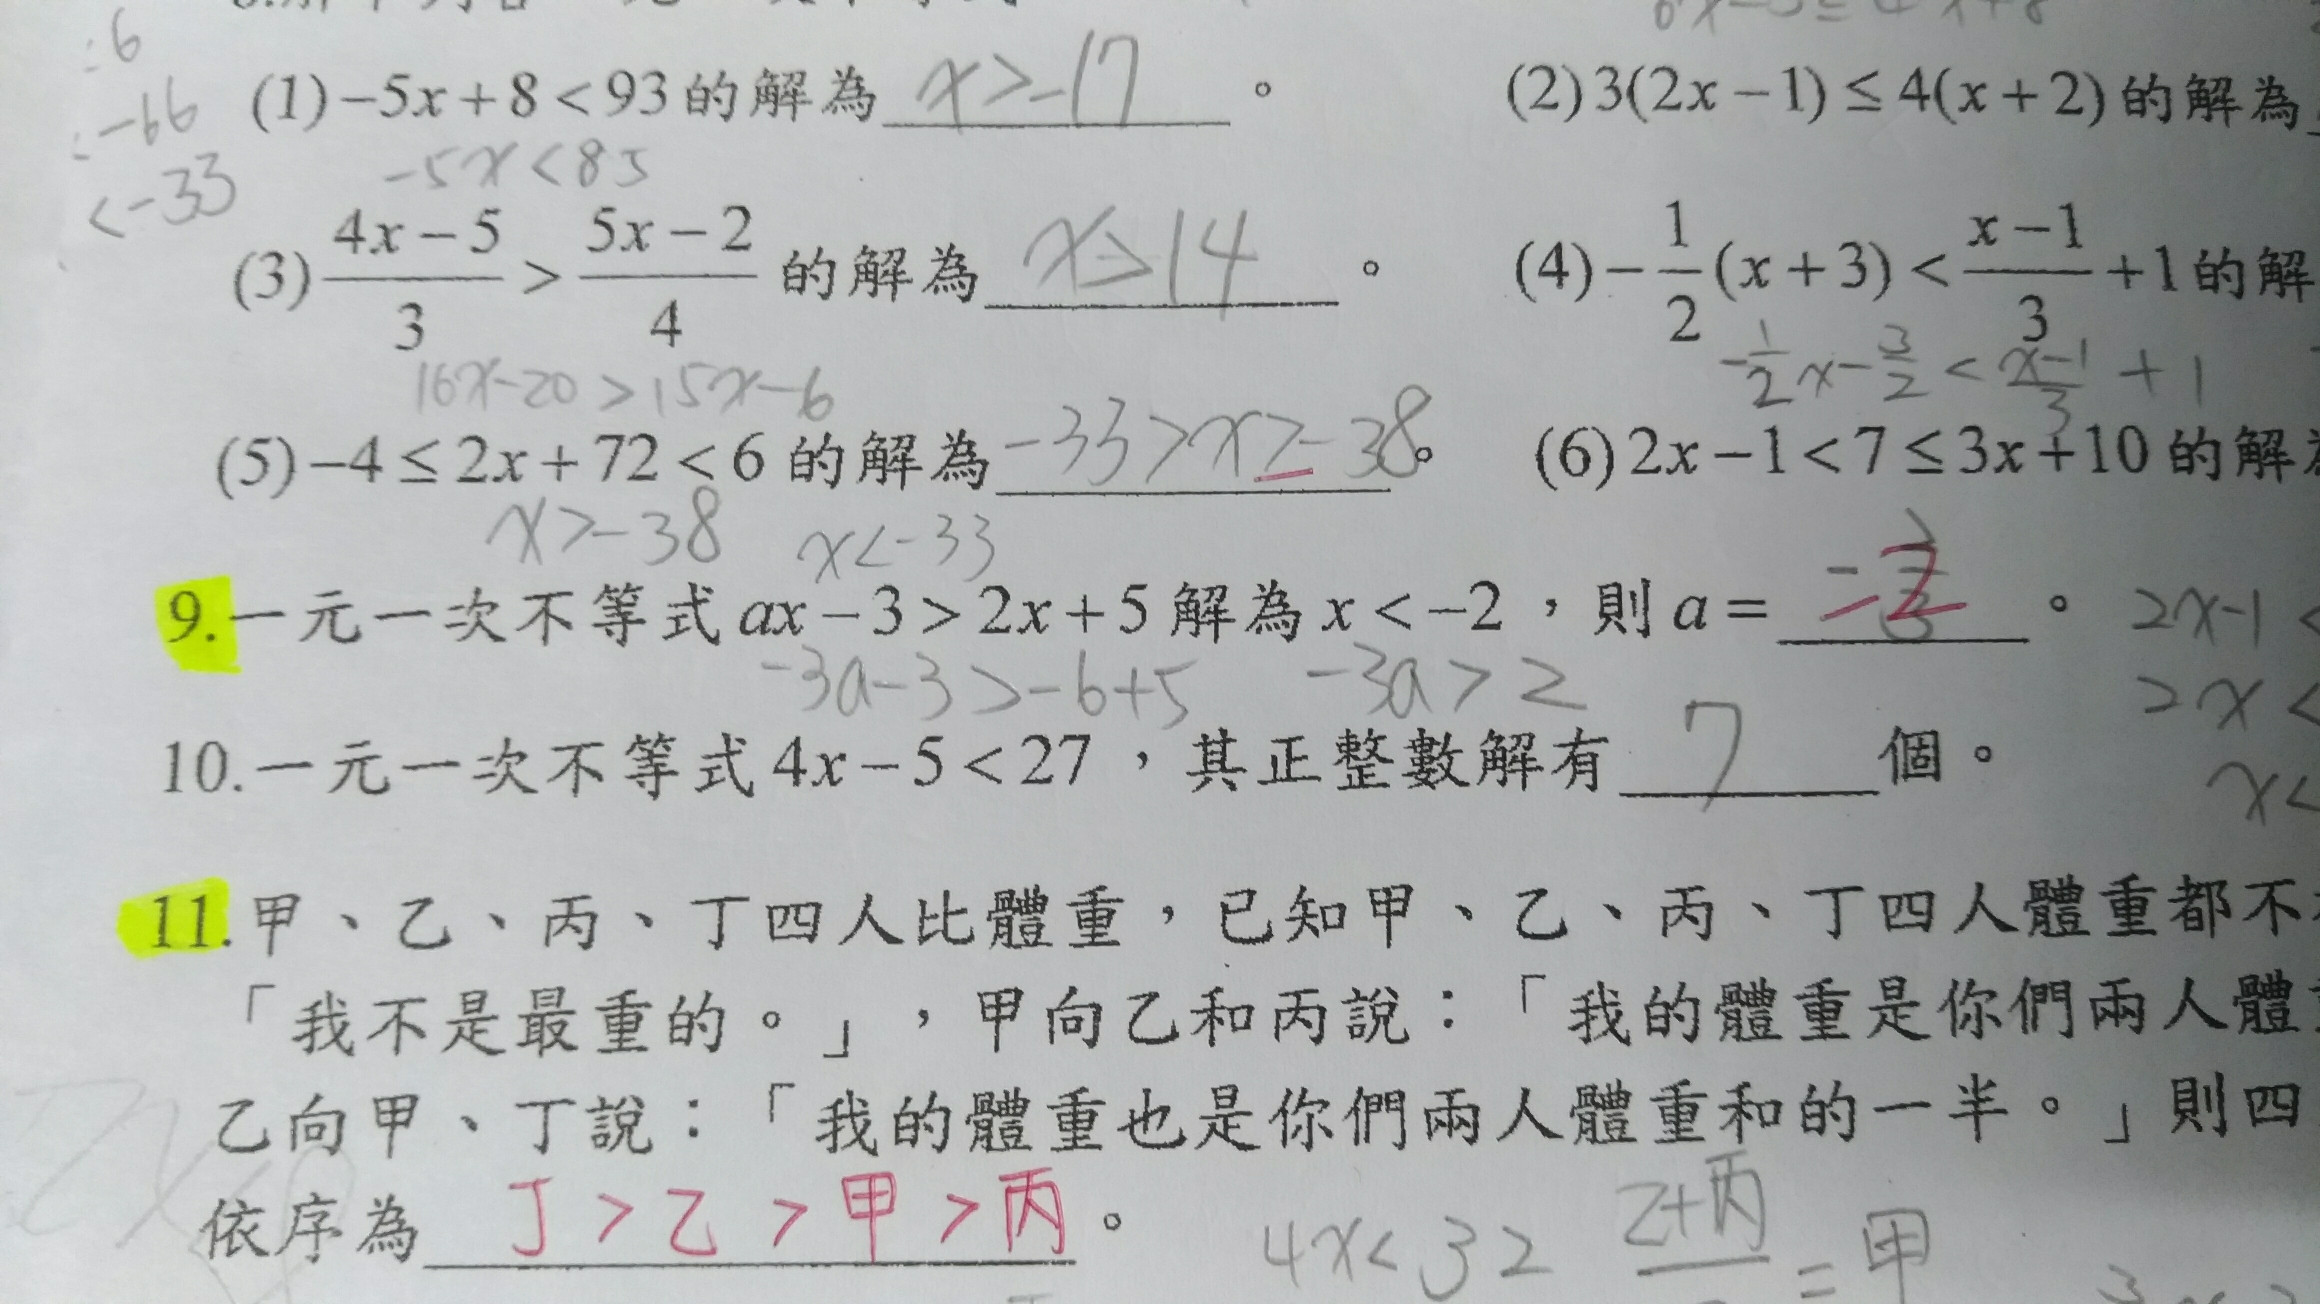 6x-3≤4x+8
:6
(1)-5x+8<93的解為 x>-17 。
(2)3(2x-1)≤4(x+2)的解為
:-66
-5x<85
<-33
(3)(4x-5)/3>(5x-2)/4的解為 x>14 。
(4)-1/2(x+3)<(x-1)/3+1的解
16x-20>15x-6
-1/2x-3/2<(x-1)/3+1
(5)-4≤2x+72<6的解為 -33>x≥-38 。
(6)2x-1<7≤3x+10的解
x>-38 x<-33
9.一元一次不等式ax-3>2x+5解為x<-2,則a= -2 。
2x-1<
-3a-3>-6+5 -3a>2
2x<
10.一元一次不等式4x-5<27,其正整數解有 7 個。
x<
11.甲、乙、丙、丁四人比體重,已知甲、乙、丙、丁四人體重都不
「我不是最重的。」,甲向乙和丙說:「我的體重是你們兩人體
乙向甲、丁說:「我的體重也是你們兩人體重和的一半。」則四
依序為 丁>乙>甲>丙 。
4x<32
乙+丙
=甲